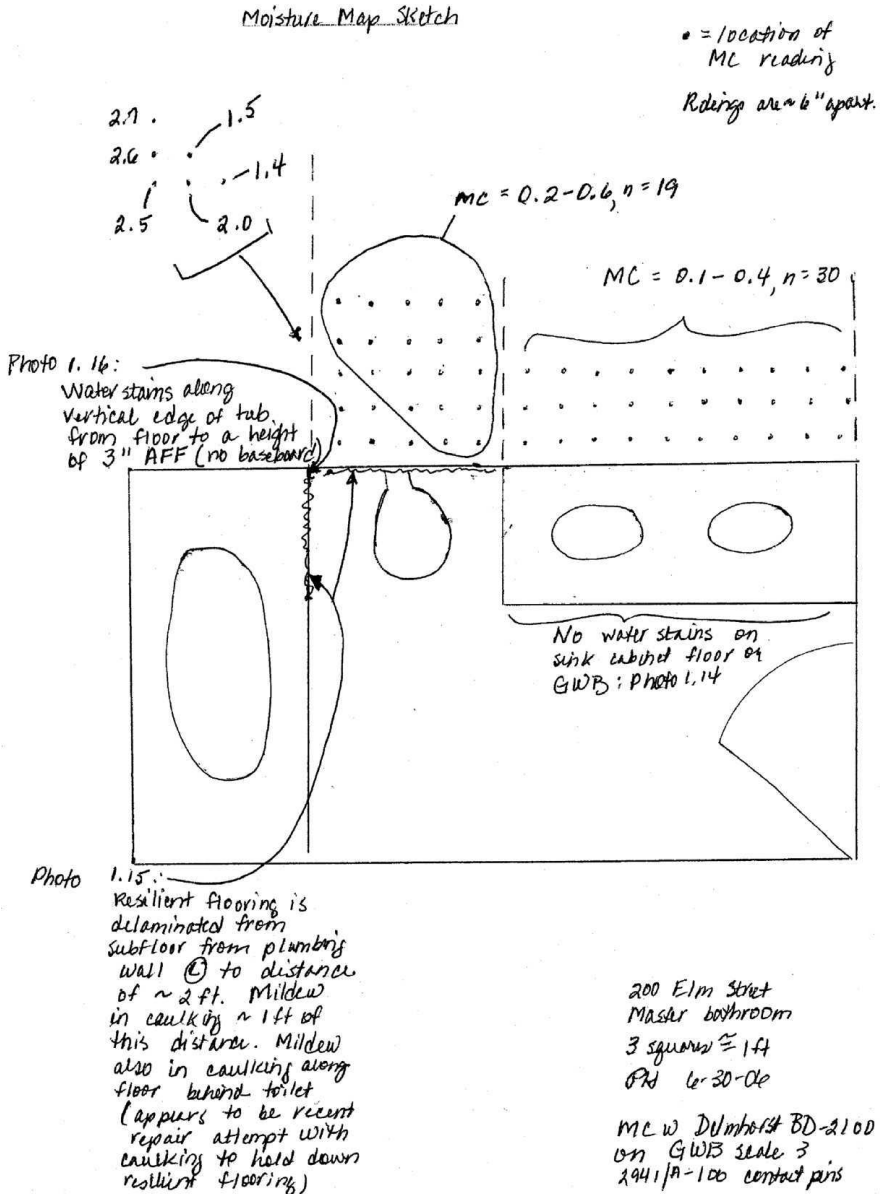 Moisture Map Sketch
• = location of
MC reading
Rdeings are ~ 6" apart.
2.7
1.5
2.6
1.4
2.5
2.0
MC = 0.2-0.6, n = 19
MC = 0.1-0.4, n = 30
Photo 1.16:
Water stains along
vertical edge of tub,
from floor to a height
of 3" AFF (no baseboard)
No water stains on
sink cabinet floor or
GWB; Photo 1.14
Photo 1.15:
Resilient flooring is
delaminated from
subfloor from plumbing
wall to distance
of ~ 2 ft. Mildew
in caulking ~ 1 ft of
this distance. Mildew
also in caulking along
floor behind toilet
(appears to be recent
repair attempt with
caulking to hold down
resilient flooring)
200 Elm Street
Master bathroom
3 squares ≅ 1 ft
6-30-06
MC w Delmhorst BD-2100
on GWB scale 3
2941/A-100 contact pins